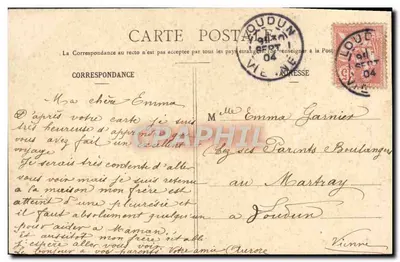 CARTE POSTALE
La Correspondance au recto n'est pas acceptée par tous les pays
CORRESPONDANCE
ADRESSE
LOUDUN
SEPT
04
VIENNE
LOUD
SEPT
04
VIE
Ma chère Emma
D'après votre carte je suis
très heureuse d'apprendre que
vous avez fait un excellent
voyage
Je serais très contente d'aller
vous voir mais je suis retenue
à la maison mon frère est
atteint d'une pleurésie et
il faut absolument quelqu'un
pour aider à Maman.
Et aussitôt mon frère rétabli
j'espère aller vous voir
Le bonjour à vos parents. Votre amie Aurore
Melle Emma Garnier
chez ses Parents Boulangers
au Martray
à Loudun
Vienne
CPAPHIL